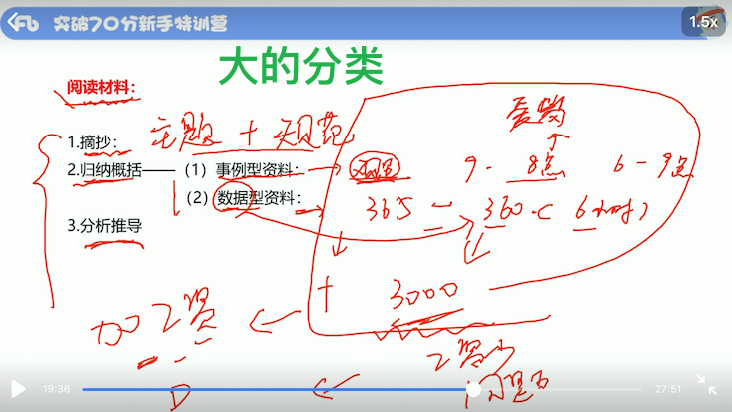 突破70分新手特训营
1.5x
大的分类
阅读材料：
1.摘抄：
主题 + 规范
2.归纳概括——（1）事例型资料：
9 - 8点 6-9点
（2）数据型资料：
365 - 360 < 6小时>
3.分析推导
+ 3000
加工资
工资少
问题
19:36
27:51